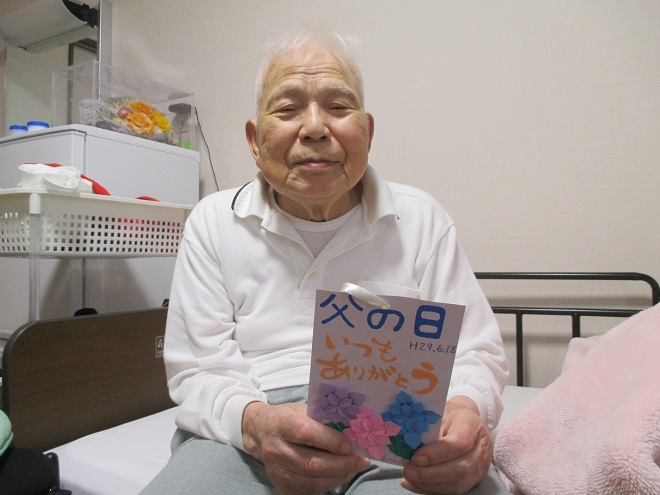 父の日
H29.6.18
いつも
ありがとう